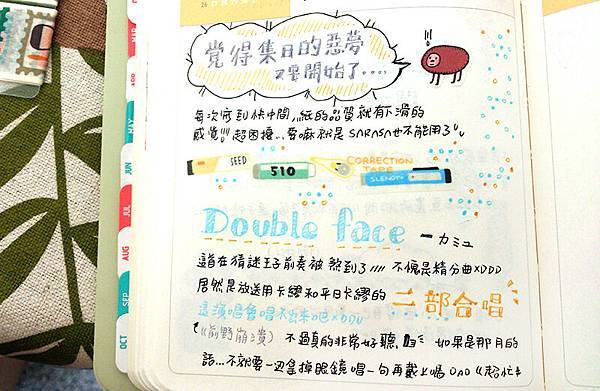 26
覺得集日的惡夢
又要開始了....
每次寫到快中間,紙的品質就有下滑的
感覺!!! 超困擾...要嘛就是SARASA也不能用了
SEED
510
CORRECTION
TAPE
SLENDY+
MAR
APR
MAY
JUN
JUL
AUG
SEP
OCT
Double face
—カミュ
這首在猜謎王子前奏被煞到了//// 不愧是精分曲XDDD
居然是放送用卡繆和平日卡繆的
二部合唱
這演唱會唱不出來吧XDDU
(前野崩潰)不過真的非常好聽 如果是那月的
話...不就要一边拿掉眼鏡唱一句再戴上嗎OAO《超忙